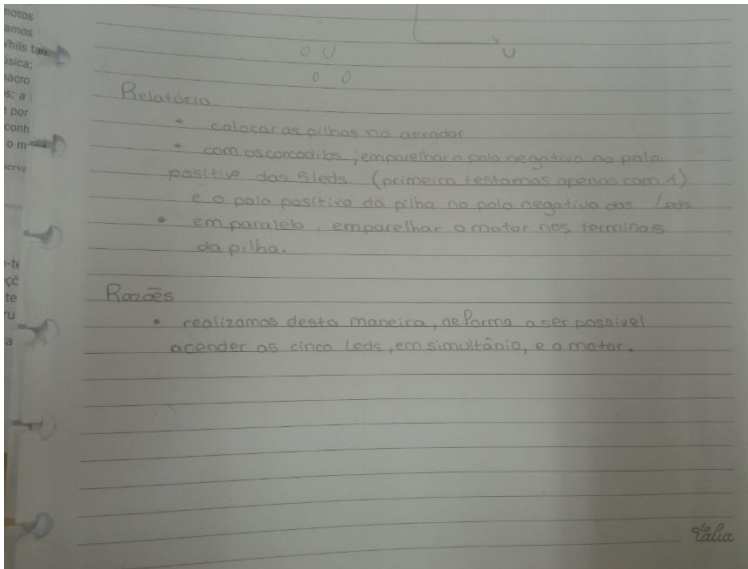 notos
amos
Whils tau
úsica;
nacro
s; a i
e por
conh
o m
U
Relatório
• colocar as pilhas no aerador
• com os corcodilos, emparelhar o polo negativo no polo
positivo dos 5 leds (primeiro testamos apenas com 1)
e o polo positivo da pilha no polo negativo dos Leds
• em paralelo, emparelhar o motor nos terminais
da pilha.
Razões
• realizamos desta maneira, de forma a ser possível
acender os cinco leds, em simultânio, e o motor.
-te
çê
te
ru
a
tália